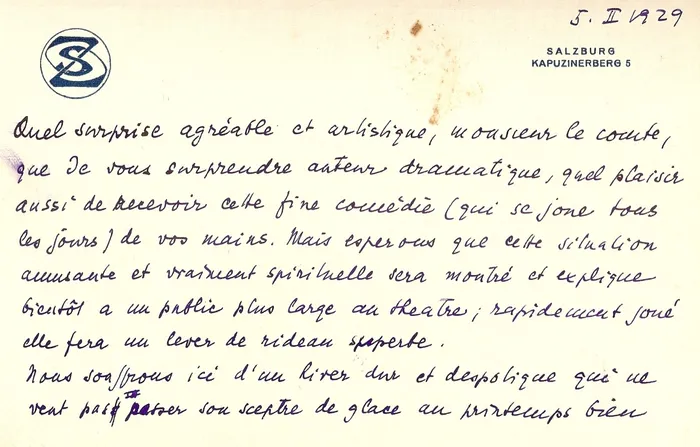 5. II 1929
SZ
SALZBURG
KAPUZINERBERG 5
Quel surprise agréable et artistique, monsieur le comte,
que de vous surprendre auteur dramatique, quel plaisir
aussi de recevoir cette fine comédie (qui se joue tous
les jours) de vos mains. Mais esperons que cette situation
amusante et vraiment spirituelle sera montré et explique
bientôt a un public plus large au theatre; rapidement joué
elle fera un lever de rideau superbe.
Nous souffrons ici d'un hiver dur et despotique qui ne
veut pas passer son sceptre de glace au printemps bien